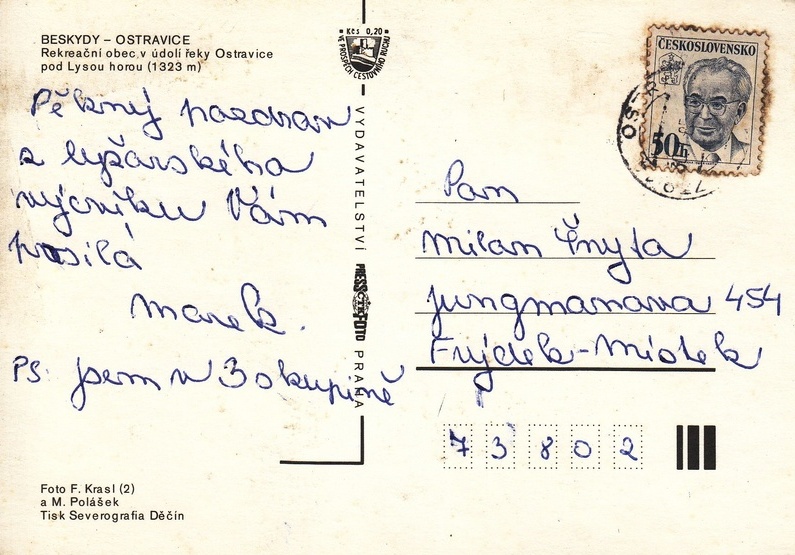 BESKYDY – OSTRAVICE
Rekreační obec v údolí řeky Ostravice
pod Lysou horou (1323 m)
Pěkný pozdrav
z lyžarského
výcviku Vám
posílá
Marek.
PS: jsem v 3 skupině
Foto F. Krasl (2)
a M. Polášek
Tisk Severografia Děčín
Kčs 0,20
VE PROSPĚCH CESTOVNÍHO RUCHU
VYDAVATELSTVÍ PRESSFOTO PRAHA
ČTK
ČESKOSLOVENSKO
50h
Pan
Milan Čnyta
Jungmanova 454
Frýdek-Místek
73802